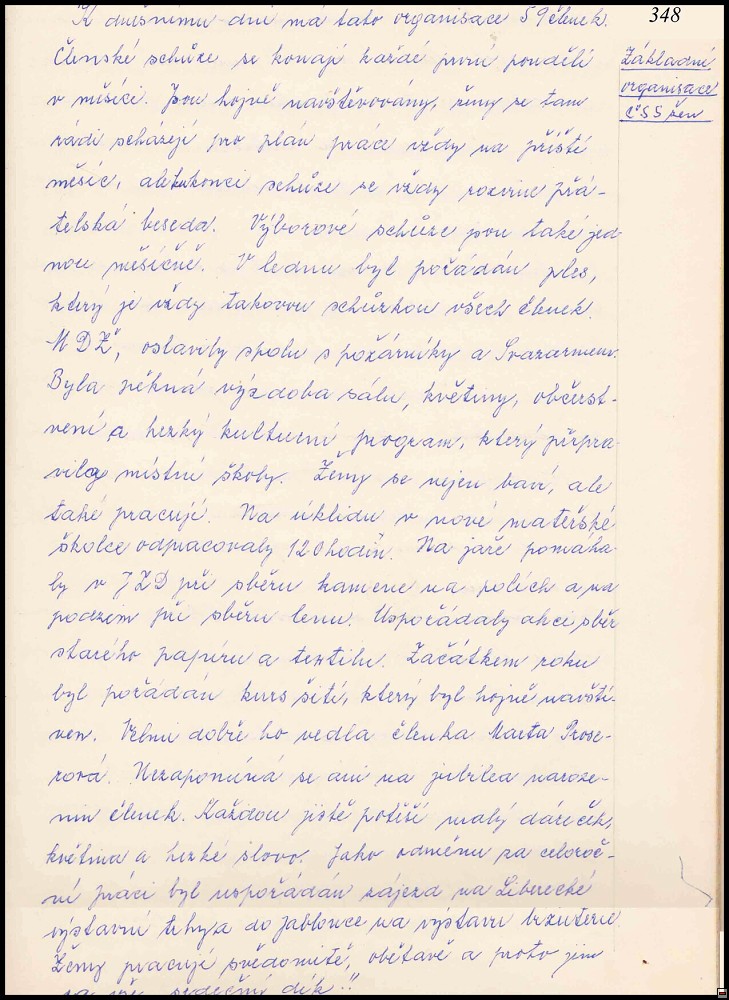 348
Základní
organisace
ČSSžen
K dnešnímu dni má tato organisace 59 členek.
Členské schůze se konají každé první pondělí
v měsíci. Jsou hojně navštěvovány, ženy se tam
rádi scházejí pro plán práce vždy na příští
měsíc, ale ke konci schůze se vždy rozvine přá-
telská beseda. Výborové schůze jsou také jed-
nou měsíčně. V lednu byl pořádán ples,
který je vždy takovou schůzkou všech členek.
MDŽ, oslavily spolu s požárníky a Svazarmem.
Byla pěkná výzdoba sálu, květiny, občerst-
vení a hezký kulturní program, který připra-
vila místní školy. Ženy se nejen baví, ale
také pracují. Na úklidu v nové mateřské
školce odpracovaly 120 hodin. Na jaře pomáha-
ly v JZD při sběru kamene na polích a na
podzim při sběru lenu. Uspořádaly akci sběr
starého papíru a textilu. Začátkem roku
byl pořádán kurs šití, který byl hojně navští-
ven. Velmi dobře ho vedla členka Marta
Nezapomíná se ani na jubilea naroze-
nin členek. Každou jistě potěší malý dáreček,
květina a hezké slovo. Jako odměnu za celoroč-
ní práci byl uspořádán zájezd na Liberecké
výstavní trhy a do Jablonce na výstavu bižuterie.
Ženy pracují svědomitě, obětavě a proto jim
za vše srdečný dík!!